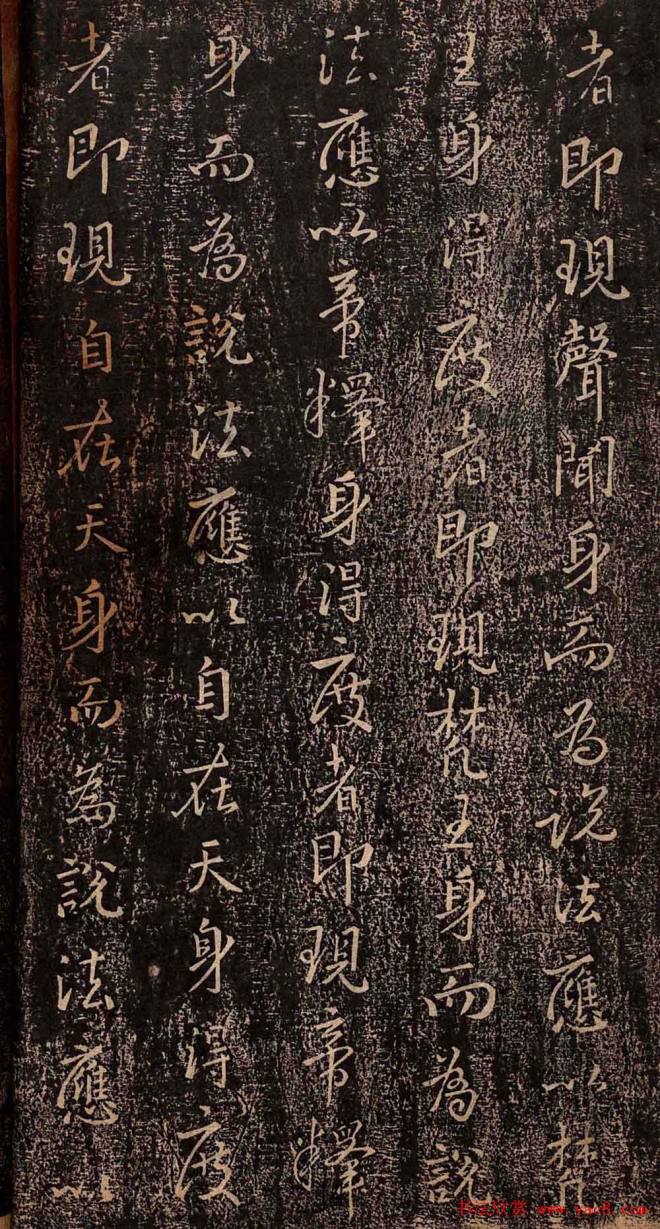 者即現聲聞身而為說法應以梵
王身得度者即現梵王身而為說
法應以帝釋身得度者即現帝釋
身而為說法應以自在天身得度
者即現自在天身而為說法應以
书法欣赏 www.yac8.com